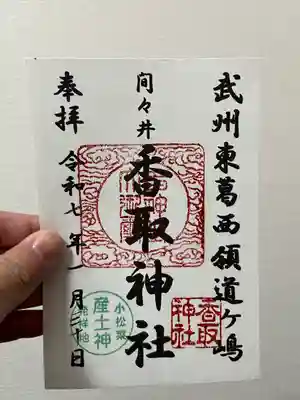 武州東葛西領道ヶ嶋
間々井
香取神社
奉拝
令和七年一月
日
香取
神社
小松菜
産土神
発祥地